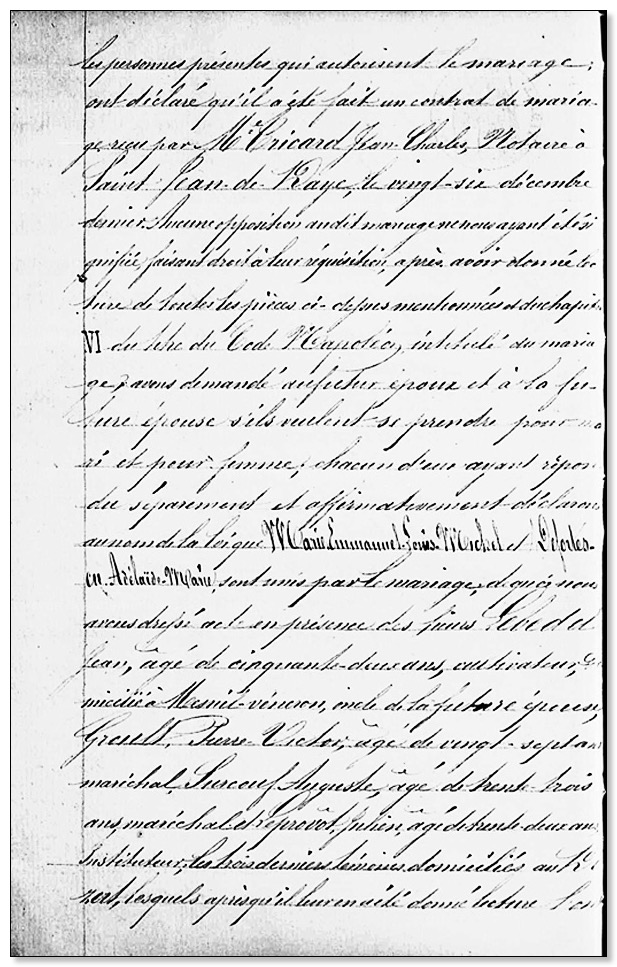 les personnes présentes qui autorisent le mariage;
ont déclaré qu'il a été fait un contrat de maria-
ge reçu par Me Tricard Jean-Charles, Notaire à
Saint-Jean-de-Daye, le vingt-six décembre
dernier. Aucune opposition au dit mariage ne nous ayant été si
gnifiée, faisant droit à leur réquisition, après avoir donnée lec
ture de toutes les pièces ci-dessus mentionnées et du chapit
VI du titre du Code Napoléon, intitulé du maria
ge, avons demandé au futur époux et à la fu-
ture épouse s'ils veulent se prendre pour ma
ri et pour femme; chacun d'eux ayant répon
du séparement et affirmativement déclarons
au nom de la loi que Marie Emmanuel-Louis-Michel et
Adélaïde-Marie, sont unis par le mariage, de quoi nous
avons dressé acte en présence des sieurs Lebedel
Jean, âgé de cinquante-deux ans, cultivateur, do
micilié à Mesnil-véneron, oncle de la future épouse,
Groult, Pierre-Victor, âgé de vingt-sept ans
maréchal, Surcouf Auguste, âgé de trente-trois
ans, maréchal et Leprovôt, Julien, âgé de trente-deux ans
Instituteur, les trois derniers témoins domiciliés au
zert, lesquels après qu'il leur en a été donné lecture l'ont